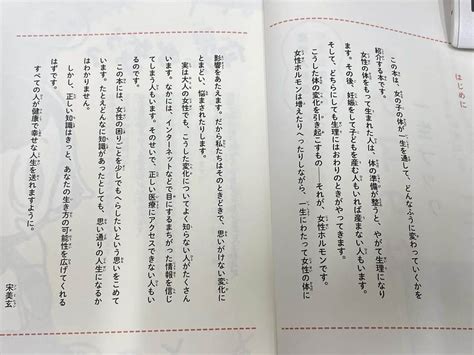 はじめに
この本は、女の子の体が一生を通して、どんなふうに変わっていくかを
紹介する本です。
女性の体をもって生まれた人は、体の準備が整うと、やがて生理になり
ます。その後、妊娠をして子どもを産む人もいれば産まない人もいます。
そして、どちらにしても生理にはおわりのときがやってきます。
こうした体の変化を引き起こすもの――それが、女性ホルモンです。
女性ホルモンは増えたりへったりしながら、一生にわたって女性の体に
影響をあたえます。だから私たちはそのときどきで、思いがけない変化に
とまどい、悩まされたりします。
実は大人の女性でも、こうした変化についてよく知らない人がたくさん
います。なかには、インターネットなどで目にするまちがった情報を信じ
てしまう人もいます。そのせいで、正しい医療にアクセスできない人もい
るのです。
この本には、女性の困りごとを少しでもへらしたいという思いをこめて
います。たとえどんなに知識があったとしても、思い通りの人生になるか
はわかりません。
しかし、正しい知識はきっと、あなたの生き方の可能性を広げてくれる
はずです。
すべての人が健康で幸せな人生を送れますように。
宋美玄